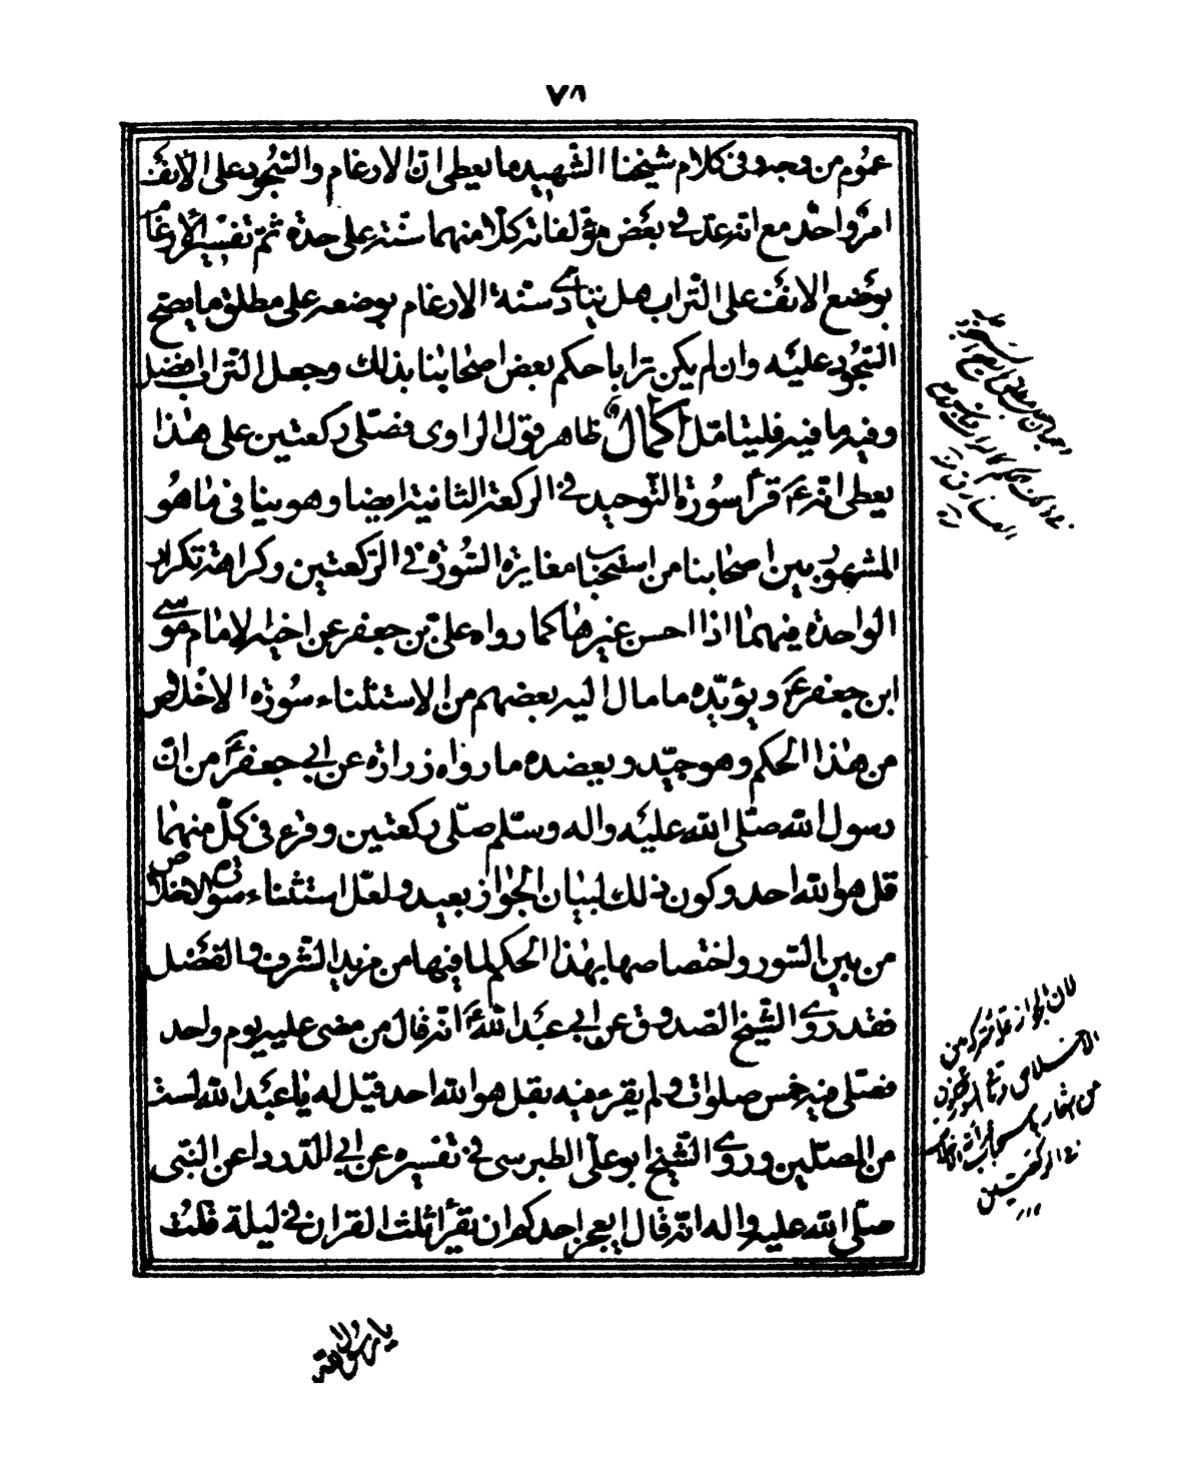 ٧٨
عموم من وجه وفي كلام شيخنا الشهيد ما يعطي ان الارغام والسجود على الانف
امر واحد مع انه عد في بعض مؤلفاته كلا منهما سنة على حدة ثم تفسير الارغام
بوضع الانف على التراب هل يتأدى سنة الارغام بوضعه على مطلق ما يصح
السجود عليه وان لم يكن ترابا حكم بعض اصحابنا بذلك وجعل التراب افضل
وفيه ما فيه فليتأمل اكمال ظاهر قول الراوى فصلى ركعتين على هذا
يعطى انه ع قرأ سورة التوحيد في الركعة الثانية ايضا وهو ينافى ما هو
المشهور بين اصحابنا من استحباب مغايرة السورة في الركعتين وكراهة تكرار
الواحدة فيهما اذا احسن غيرها كما رواه على بن جعفر عن اخيه الامام موسى
ابن جعفر ع ويؤيده ما مال اليه بعضهم من الاستثناء سورة الاخلاص
من هذا الحكم وهو جيد ويعضده ما رواه زرارة عن ابي جعفر ع من ان
رسول الله صلى الله عليه واله وسلم صلى ركعتين وقرء في كل منهما
قل هو الله احد وكون ذلك لبيان الجواز بعيد ولعل استثناء سورة الاخلاص
من بين السور واختصاصها بهذا الحكم لما فيها من مزيد الشرف والفضل
فقد روى الشيخ الصدوق عن ابي عبد الله ع انه قال من مضى عليه يوم واحد
فصلى فيه خمس صلوات ولم يقرء فيه بقل هو الله احد قيل له يا عبد الله لست
من المصلين وروى الشيخ ابو على الطبرسى في تفسيره عن ابي الدرداء عن النبى
صلى الله عليه واله انه قال ايعجز احدكم ان يقرأ ثلث القران في ليلة قلت
لان الجواز
من
في الركعتين
يا رسول الله